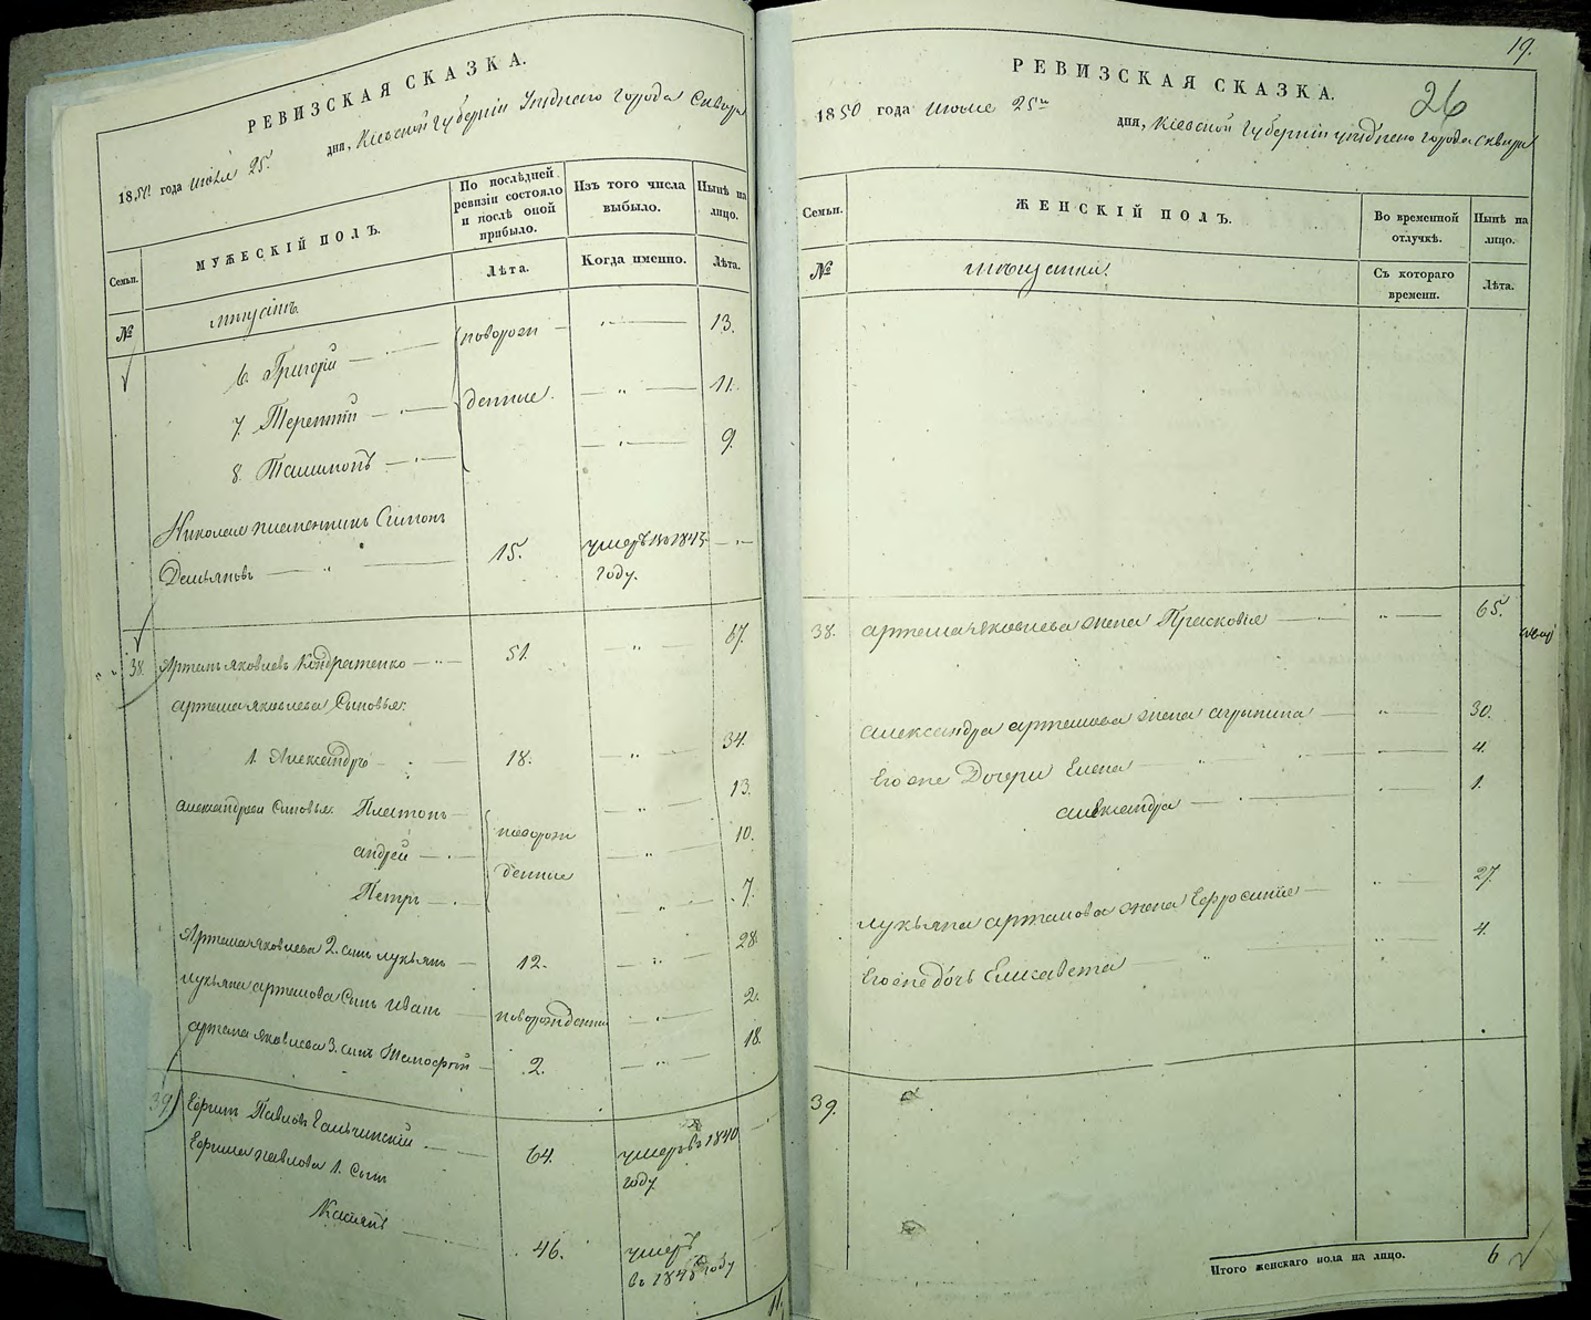 РЕВИЗСКАЯ СКАЗКА.
1850 года июля 25. дня, Кіевской Губерніи Уѣзднаго Города Сквира
Семьи.
МУЖЕСКІЙ ПОЛЪ.
По послѣдней ревизіи состояло и послѣ оной прибыло.
Изъ того числа выбыло.
Нынѣ на лицо.
№
Лѣта.
Когда именно.
Лѣта.
6. Григорій — новорож — " — 13.
7. Терентій — " — денные. — " — 11.
8. — " — — " — 9.
Николая племенникъ Симонъ
Демьяновъ — " — 15. умеръ въ 1843 году. — " —
38. Артемъ Яковлевъ Кондратенко — " — 51. — " — 67.
Артема Яковлева Сыновья:
1. Александръ — 18. — " — 34.
Александра Сыновья: Платонъ — новорож — " — 13.
Андрей — " — денные — " — 10.
Петръ — " — — " — 7.
Артема Яковлева 2. сынъ Лукьянъ — 12. — " — 28.
Лукьяна Артемова Сынъ Иванъ — новорожденный — " — 2.
Артема Яковлева 3. сынъ Тимофей — 2. — " — 18.
39. Ефимъ Павловъ Гальчинскій — 64. умеръ въ 1840 году
Ефима Павлова 1. Сынъ
46. умеръ
году
11.
19.
РЕВИЗСКАЯ СКАЗКА.
26
1850 года июля 25 дня, Кіевской Губерніи уѣзднаго города Сквира
Семьи.
ЖЕНСКІЙ ПОЛЪ.
Во временной отлучкѣ.
Нынѣ на лицо.
№
Съ котораго времени.
Лѣта.
38. Артема Яковлева жена Прасковія — " — 65.
Александра Артемова жена Агрыпина — " — 30.
Его же Дочери Елена — " — 4.
Александра — " — 1.
Лукьяна Артемова жена Ефросинія — " — 27.
Его же дочь Елисавета — " — 4.
39.
Итого женскаго пола на лицо. 6